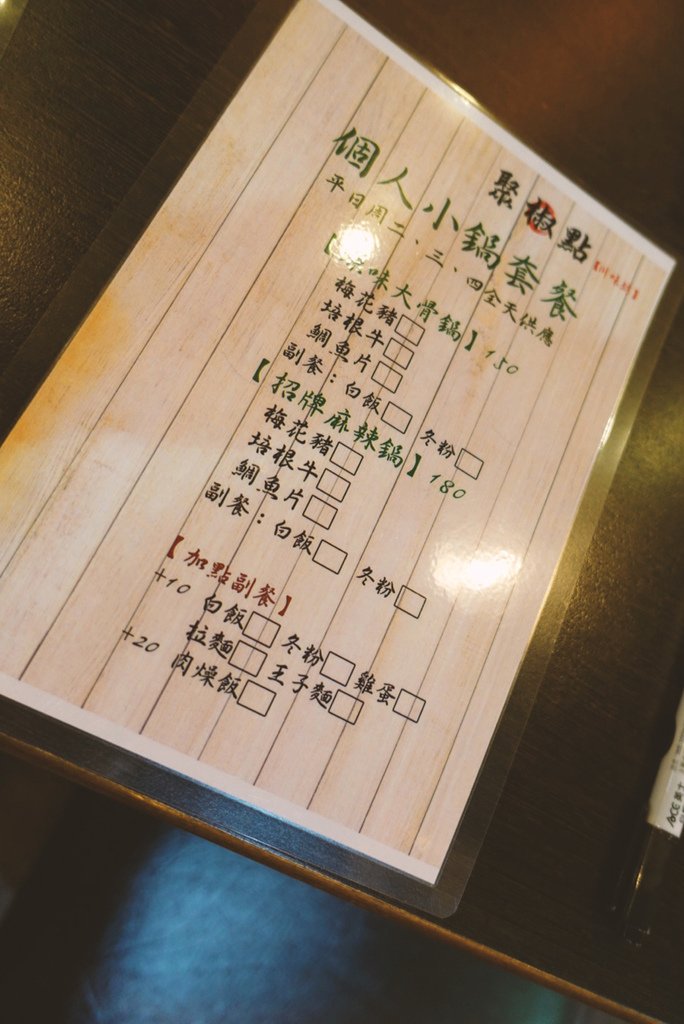 聚椒點【川味坊】
個人小鍋套餐
平日周二、三、四全天供應
【原味大骨鍋】150
梅花豬□
培根牛□
鯛魚片□
副餐：白飯□ 冬粉□
【招牌麻辣鍋】180
梅花豬□
培根牛□
鯛魚片□
副餐：白飯□ 冬粉□
【加點副餐】
+10 白飯□ 冬粉□ 雞蛋□
+20 拉麵□ 王子麵□
肉燥飯□